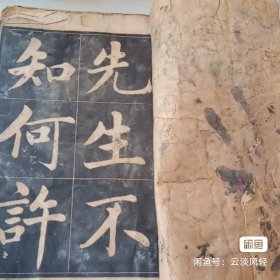 先生不
知何許
闲鱼
闲鱼号：云淡风轻